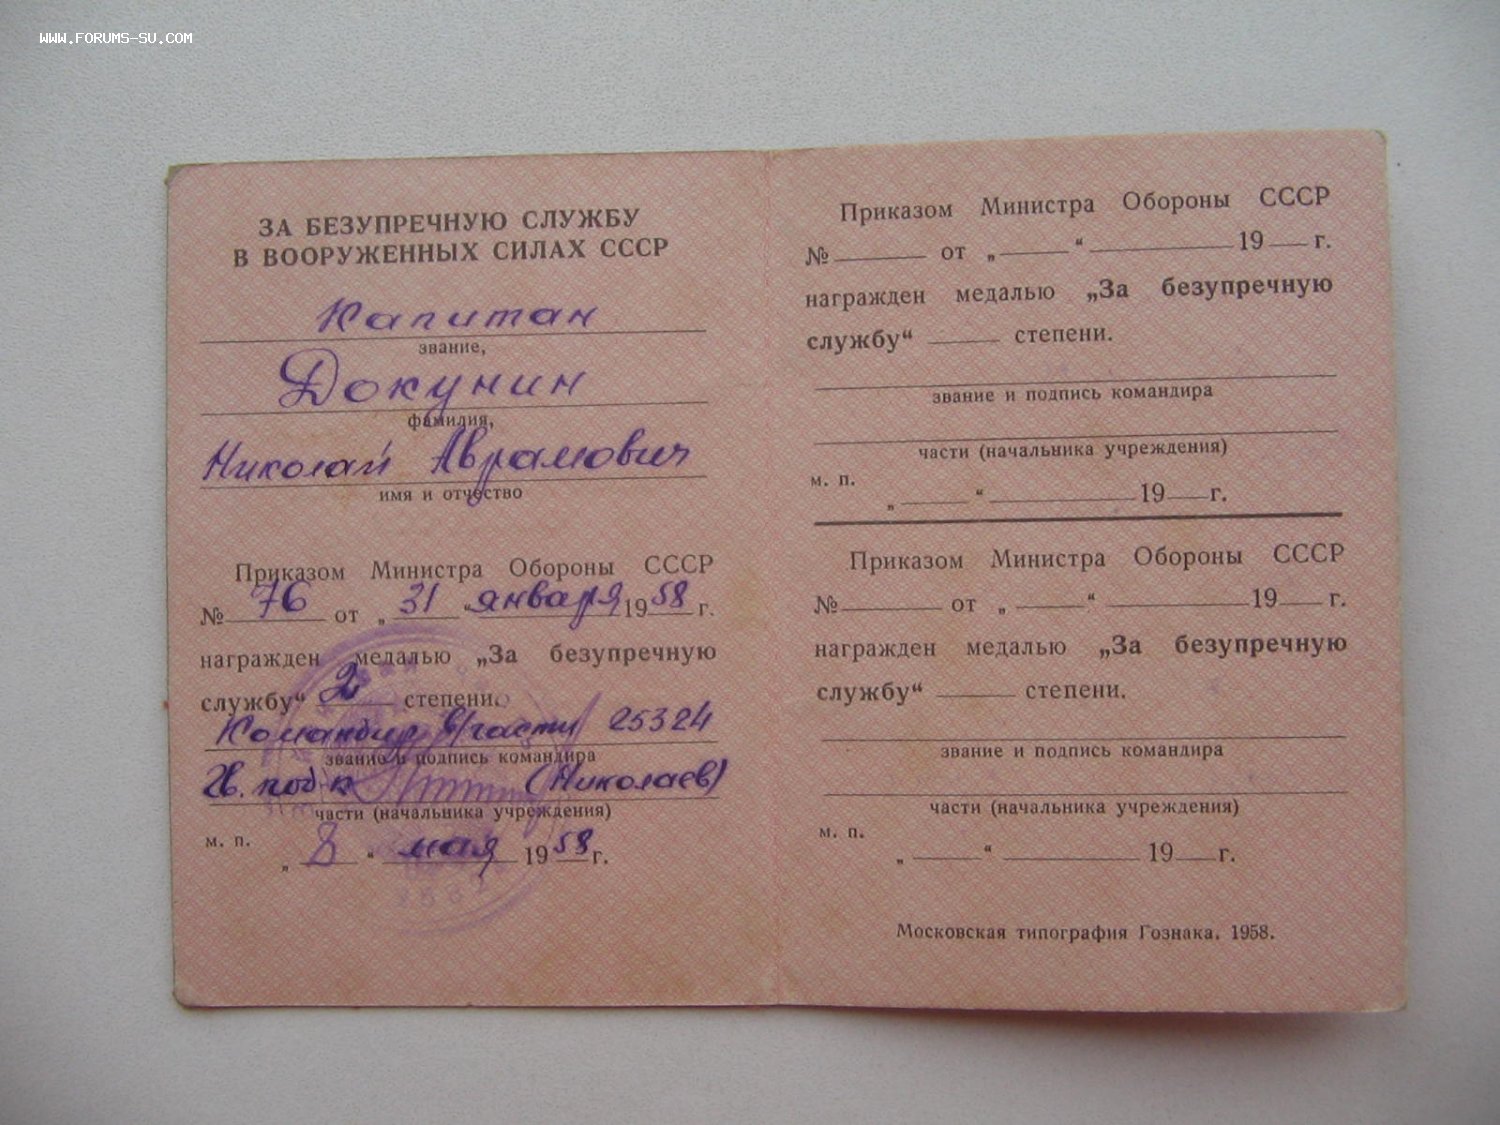 WWW.FORUMS-SU.COM
ЗА БЕЗУПРЕЧНУЮ СЛУЖБУ
В ВООРУЖЕННЫХ СИЛАХ СССР
Капитан
звание,
Докунин
фамилия,
Николай Аврамович
имя и отчество
Приказом Министра Обороны СССР
№ 76 от „ 31 “ января 1958 г.
награжден медалью „За безупречную
службу“ 2 степени.
Командир в/части 25324
звание и подпись командира
Гв. подп-к (Николаев)
части (начальника учреждения)
м. п.
„ 8 “ мая 1958 г.
Приказом Министра Обороны СССР
№ от „ “ 19 г.
награжден медалью „За безупречную
службу“ степени.
звание и подпись командира
части (начальника учреждения)
м. п.
„ “ 19 г.
Приказом Министра Обороны СССР
№ от „ “ 19 г.
награжден медалью „За безупречную
службу“ степени.
звание и подпись командира
части (начальника учреждения)
м. п.
„ “ 19 г.
Московская типография Гознака. 1958.